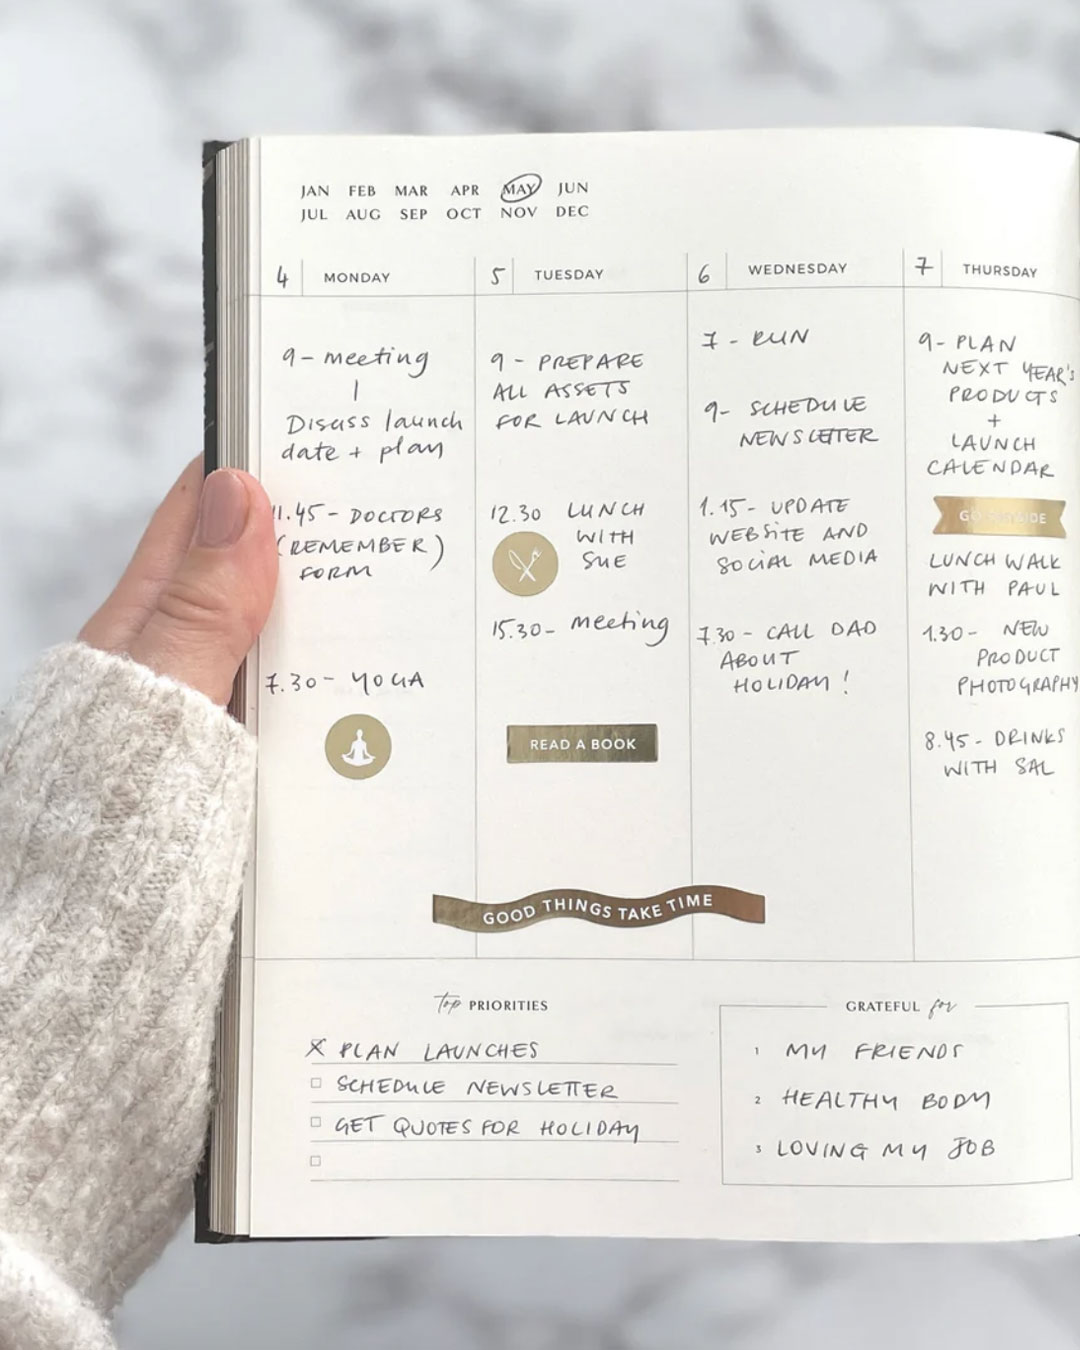 JAN FEB MAR APR MAY JUN
JUL AUG SEP OCT NOV DEC
4 MONDAY
9 - meeting
Discuss launch
date + plan
11.45 - DOCTORS
(REMEMBER)
FORM
7.30 - YOGA
5 TUESDAY
9 - PREPARE
ALL ASSETS
FOR LAUNCH
12.30 LUNCH
WITH
SUE
15.30 - meeting
READ A BOOK
6 WEDNESDAY
7 - RUN
9 - SCHEDULE
NEWSLETTER
1.15 - UPDATE
WEBSITE AND
SOCIAL MEDIA
7.30 - CALL DAD
ABOUT
HOLIDAY!
7 THURSDAY
9 - PLAN
NEXT YEAR'S
PRODUCTS
+
LAUNCH
CALENDAR
GO OUTSIDE
LUNCH WALK
WITH PAUL
1.30 - NEW
PRODUCT
PHOTOGRAPHY
8.45 - DRINKS
WITH SAL
GOOD THINGS TAKE TIME
Top PRIORITIES
X PLAN LAUNCHES
SCHEDULE NEWSLETTER
GET QUOTES FOR HOLIDAY
GRATEFUL for
1 MY FRIENDS
2 HEALTHY BODY
3 LOVING MY JOB